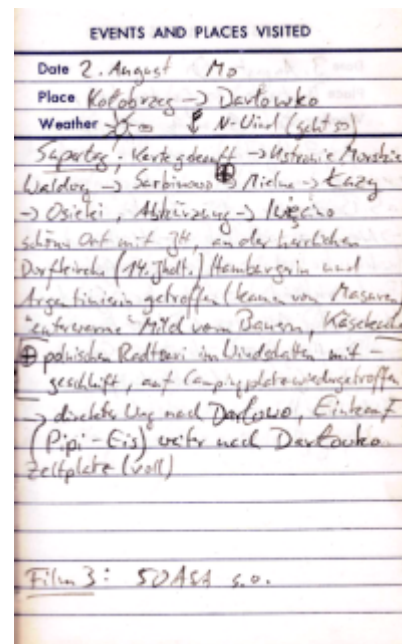 EVENTS AND PLACES VISITED
Date 2. August Mo
Place Kołobrzeg -> Darłowko
Weather N-Wind (geht so)
Supertag, Karte gekauft -> Ustronie Morskie
-> Sarbinowo ⊕ -> Mielno -> Łazy
-> Osieki, Abkürzung -> Iwięcino
schöner Ort mit JH, an der herrlichen
Dorfkirche (14. Jhdt.) Hamburgerin und
Argentinierin getroffen (kamen von Masuren)
"euterwarme" Milch vom Bauern,
⊕ polnischen im Windschatten mit-
geschleift, auf Campingplatz wiedergetroffen
-> direkter Weg nach Darłowo, Einkauf
(Pipi-Eis) weiter nach Darłowko
Zeltplatz (voll)
Film 3: 50 ASA s.o.